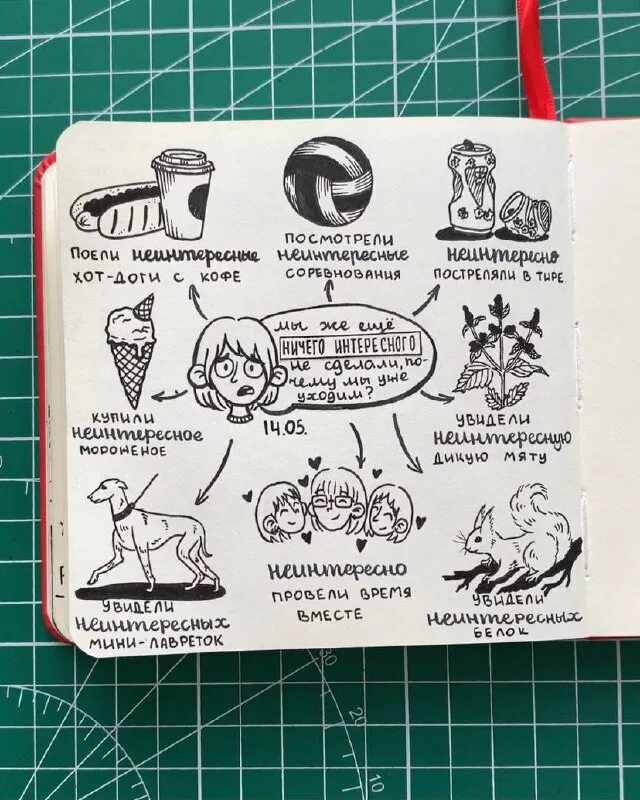 ПОЕЛИ НЕИНТЕРЕСНЫЕ
ХОТ-ДОГИ С КОФЕ
ПОСМОТРЕЛИ
НЕИНТЕРЕСНЫЕ
СОРЕВНОВАНИЯ
НЕИНТЕРЕСНО
ПОСТРЕЛЯЛИ В ТИРЕ
МЫ ЖЕ ЕЩЁ
НИЧЕГО ИНТЕРЕСНОГО
НЕ СДЕЛАЛИ, ПО-
ЧЕМУ МЫ УЖЕ
УХОДИМ?
14.05.
КУПИЛИ
НЕИНТЕРЕСНОЕ
МОРОЖЕНОЕ
УВИДЕЛИ
НЕИНТЕРЕСНУЮ
ДИКУЮ МЯТУ
УВИДЕЛИ
НЕИНТЕРЕСНЫХ
МИНИ-ЛАВРЕТОК
НЕИНТЕРЕСНО
ПРОВЕЛИ ВРЕМЯ
ВМЕСТЕ
УВИДЕЛИ
НЕИНТЕРЕСНЫХ
БЕЛОК
20
10